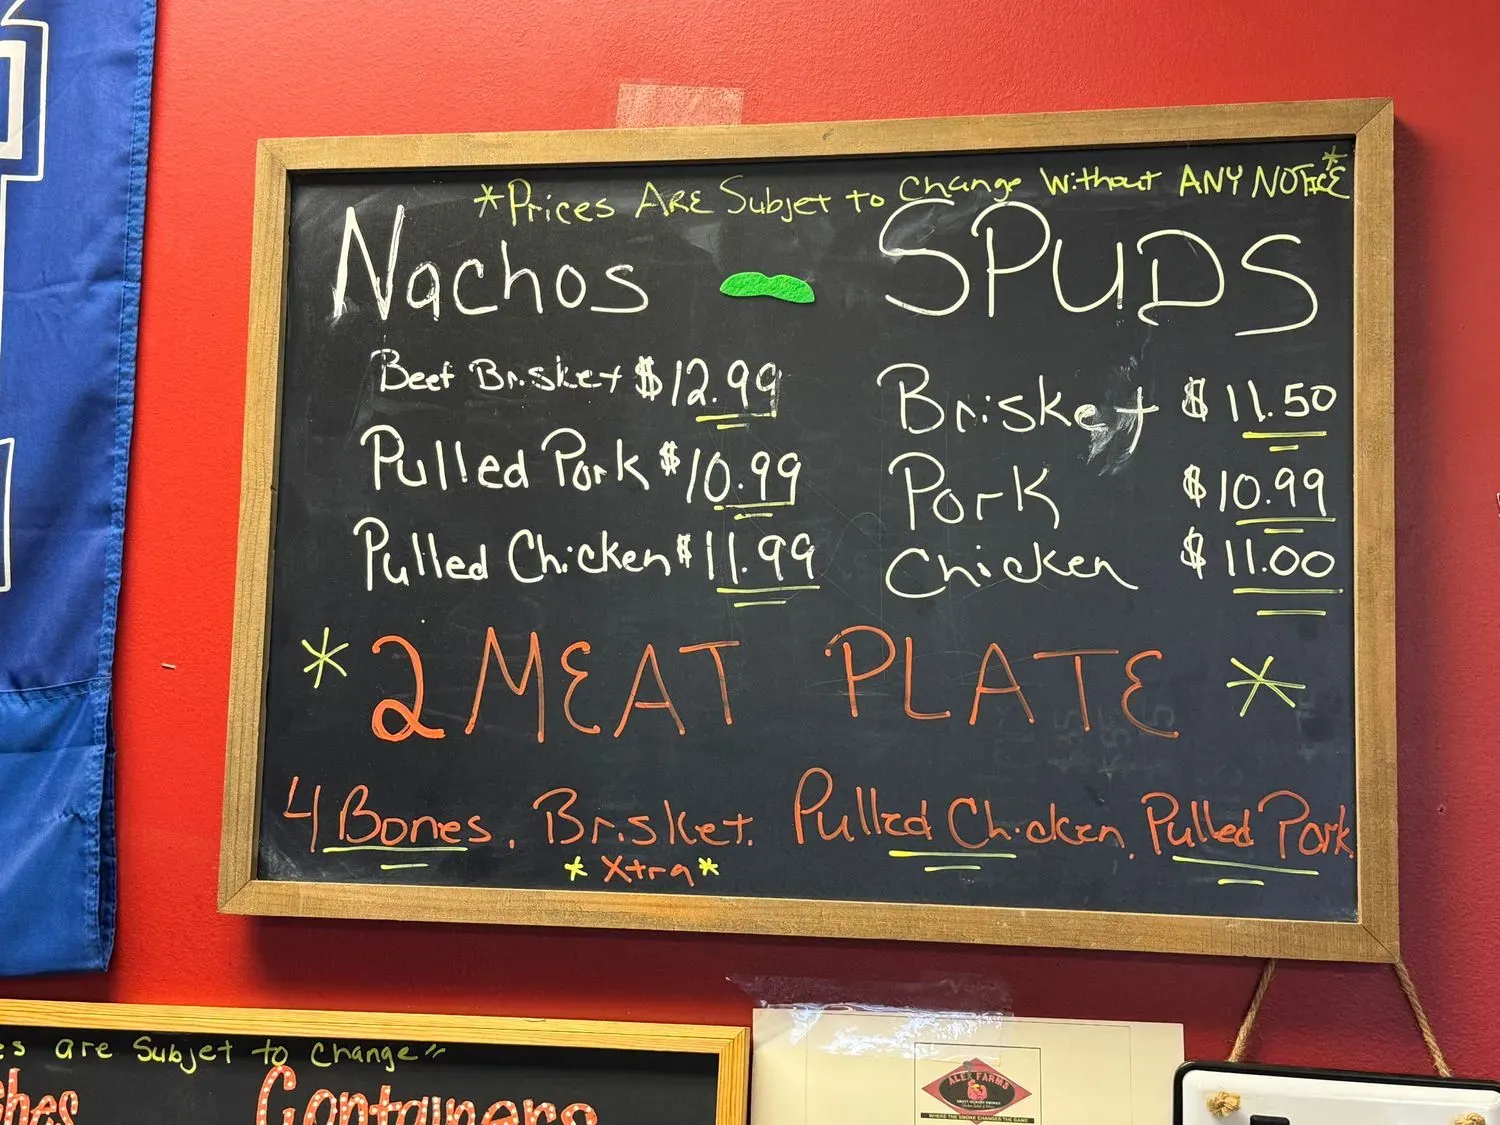 *Prices ARE Subjet to Change Without ANY NOTICE*
Nachos - SPUDS
Beef Brisket $12.99
Pulled Pork $10.99
Pulled Chicken $11.99
Brisket $11.50
Pork $10.99
Chicken $11.00
* 2 MEAT PLATE *
4 Bones. Brisket. Pulled Chicken. Pulled Pork.
* Xtra *
es are Subjet to Change"
hes
Containers
ALEX FARMS
WHERE THE SMOKE CHANGES THE GAME